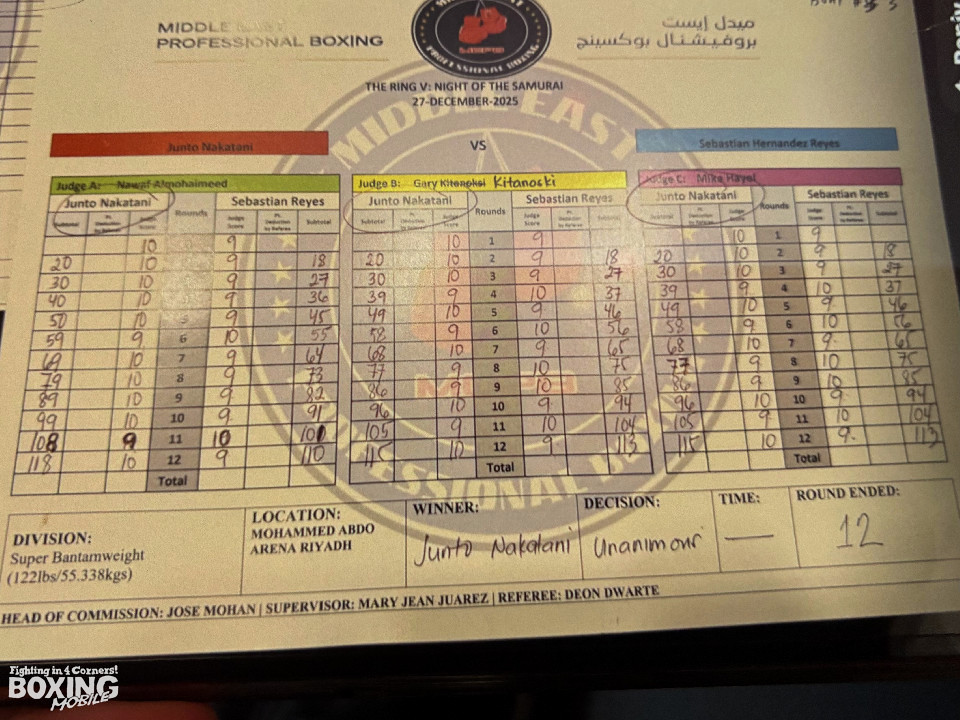 MIDDLE EAST
PROFESSIONAL BOXING
ميدل إيست
بروفيشنال بوكسينج
PROFESSIONAL BOXING
THE RING V: NIGHT OF THE SAMURAI
27-DECEMBER-2025
MIDDLE EAST
PROFESSIONAL BOXING
Junto Nakatani VS Sebastian Hernandez Reyes
Judge A: Nawaf Almohaimeed Judge B: Gary Kitanoksi Kitanoski Judge C: Mike
Junto Nakatani Rounds Sebastian Reyes Junto Nakatani Rounds Sebastian Reyes Junto Nakatani Rounds Sebastian Reyes
Subtotal Pt. Deduction by Referee Judge Score Judge Score Pt. Deduction by Referee Subtotal Subtotal Pt. Deduction by Referee Judge Score Judge Score Pt. Deduction by Referee Subtotal Subtotal Pt. Deduction by Referee Judge Score Judge Score Pt. Deduction by Referee Subtotal
10 9 10 1 9 10 1 9
20 10 9 18 20 10 2 9 18 20 10 2 9 18
30 10 9 27 30 10 3 9 27 30 10 3 9 27
40 10 9 36 39 9 4 10 37 39 9 4 10 37
50 10 5 9 45 49 10 5 9 46 49 10 5 9 46
59 9 6 10 55 58 9 6 10 56 58 9 6 10 56
69 10 7 9 64 68 10 7 9 65 68 10 7 9 65
79 10 8 9 73 77 9 8 10 75 77 9 8 10 75
89 10 9 9 82 86 9 9 10 85 86 9 9 10 85
99 10 10 9 91 96 10 10 9 94 96 10 10 9 94
108 9 11 10 101 105 9 11 10 104 105 9 11 10 104
118 10 12 9 110 115 10 12 9 113 115 10 12 9 113
Total Total Total
DIVISION:
Super Bantamweight
(122lbs/55.338kgs)
LOCATION:
MOHAMMED ABDO
ARENA RIYADH
WINNER:
Junto Nakatani
DECISION:
Unanimour
TIME:
—
ROUND ENDED:
12
HEAD OF COMMISSION: JOSE MOHAN | SUPERVISOR: MARY JEAN JUAREZ | REFEREE: DEON DWARTE
Fighting in 4 Corners!
BOXING
MOBILE